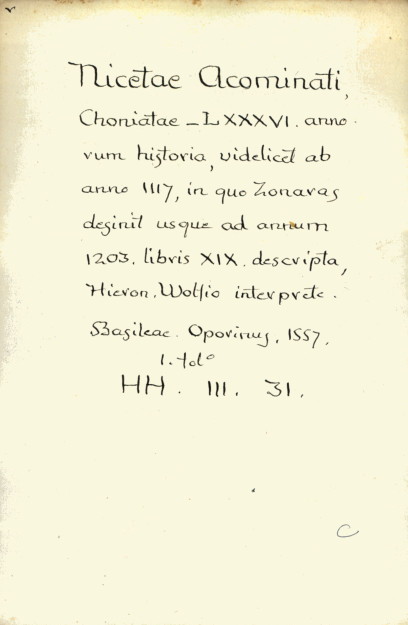 Nicetae Acominati,
Choniatae – LXXXVI. anno-
rum historia, videlicet ab
anno 1117, in quo Zonaras
desinit usque ad annum
1203. libris XIX. descripta,
Hieron. Wolfio interprete.
Basileae. Oporinus, 1557.
1. folº
HH. III. 31.
C